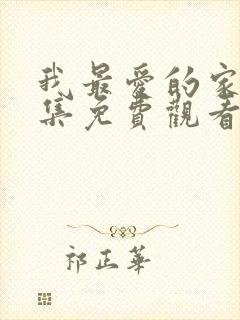 我最愛的家
集免費觀看
祁正華